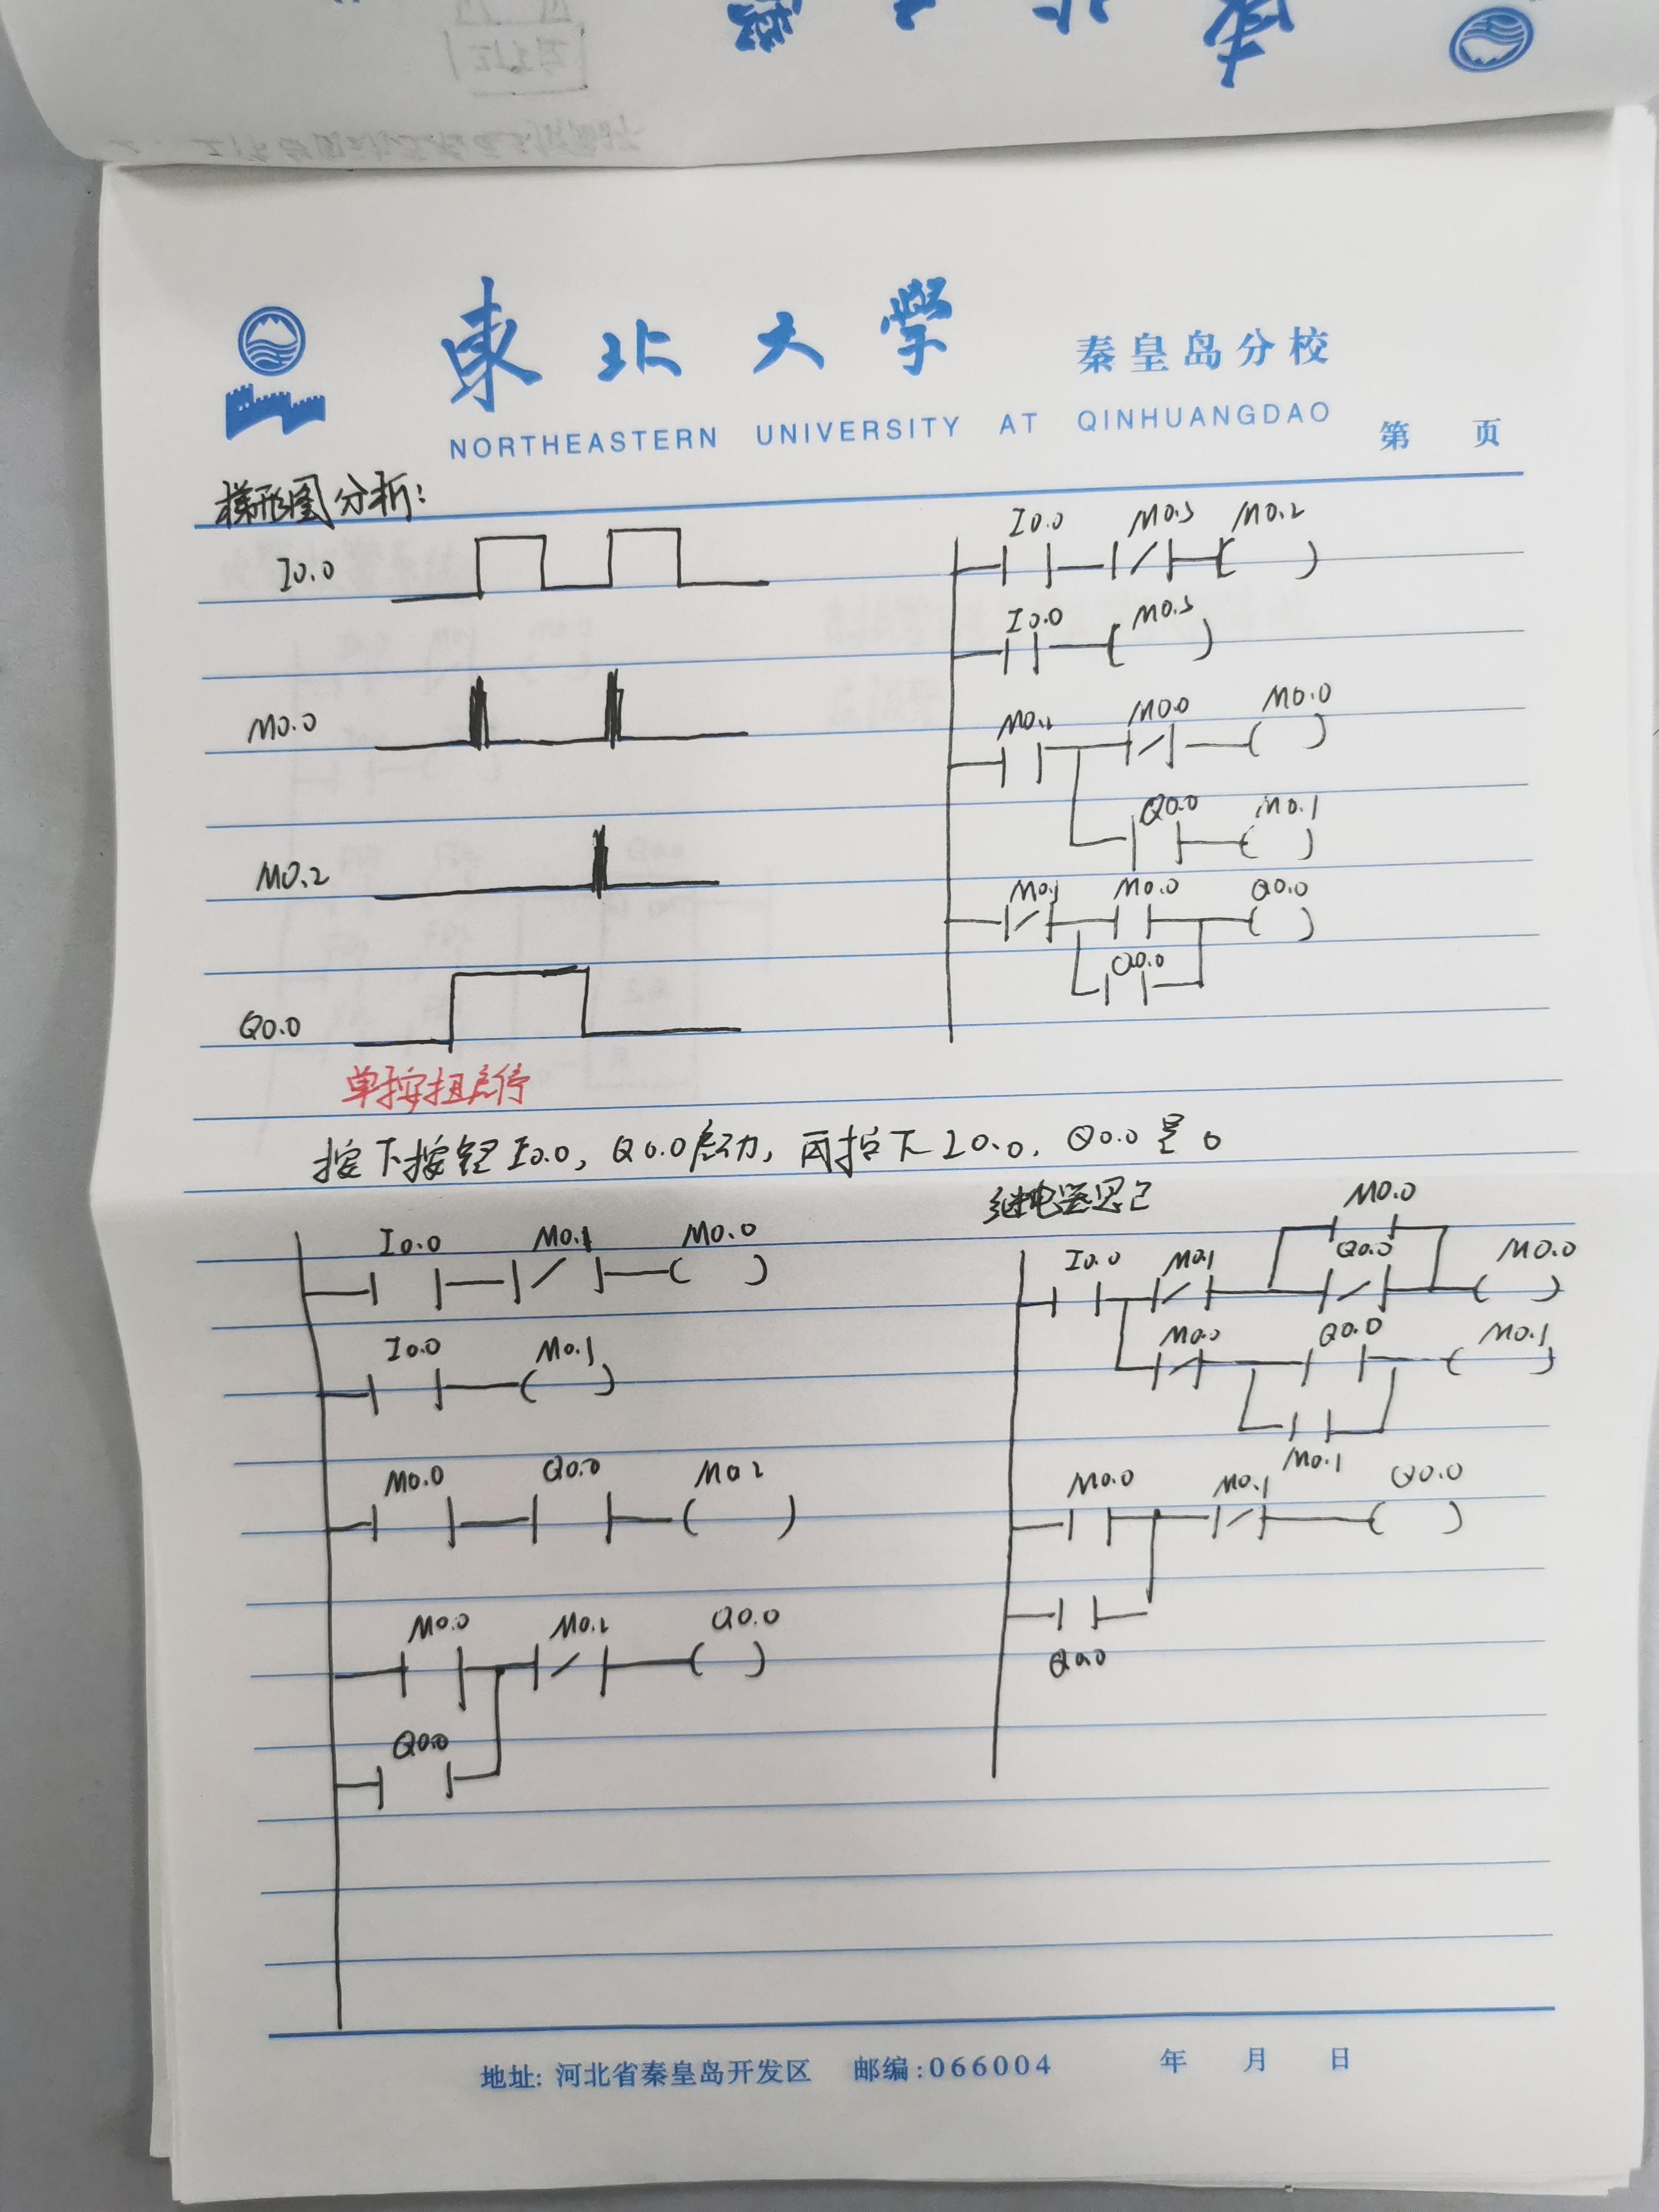 東北大學 秦皇岛分校
NORTHEASTERN UNIVERSITY AT QINHUANGDAO
第 页
梯形图分析:
I0.0
M0.0
M0.2
Q0.0
I0.0 M0.3 M0.2
I0.0 M0.3
M0.2 M0.0 M0.0
Q0.0 M0.1
M0.1 M0.0 Q0.0
Q0.0
单按扭启停
按下按钮I0.0, Q0.0启动, 再按下I0.0, Q0.0是0
I0.0 M0.1 M0.0
I0.0 M0.1
M0.0 Q0.0 M0.2
M0.0 M0.2 Q0.0
Q0.0
继电器思己
M0.0
I0.0 M0.1 Q0.0 M0.0
M0.0 Q0.0 M0.1
M0.1
M0.0 M0.1 Q0.0
Q0.0
地址: 河北省秦皇岛开发区 邮编:066004 年 月 日